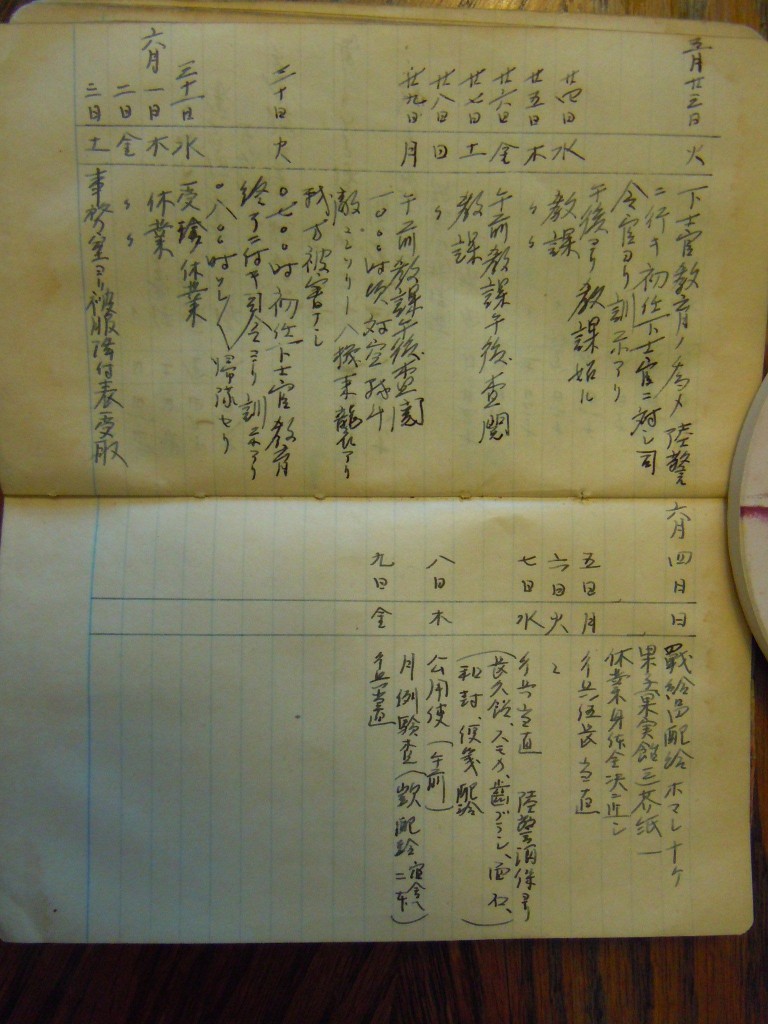 五月廿三日 火 下士官教育ノ為メ陸警
ニ行キ初任下士官ニ対シ司
令官ヨリ訓示アリ
午後ヨリ教課始ル
廿四日 水 教課
廿五日 木 〃 〃
廿六日 金 午前教課午後査閲
廿七日 土 教課
廿八日 日 〃
廿九日 月 午前教課午後査閲
一〇〇〇時頃対空戦斗
敵コンソリー八機来襲アリ
我方被害ナシ
三十日 火 〇七〇〇時初任下士官教育
終了ニ付キ司令ヨリ訓示アリ
〇八〇〇時ソレ〱帰隊セリ
三十一日 水 受診休業
六月一日 木 休業
二日 金 〃 〃
三日 土 事務室ヨリ被服除付表受取
六月四日 日 戦給品配給 ホマレ
果実 三 紙一
休業身体全決ニ近シ
五日 月 兵伍長当直
六日 火 〃
七日 水 兵当直 陸警酒保ヨリ
(スモカ、歯ブラシ、
封、便箋配給
八日 木 公用使(午前)
九日 金 月例験査(配給 二本)
兵当直